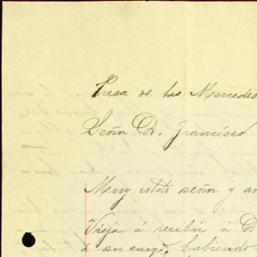 Presa de las Mercedes
Señor D. Francisco
Muy estdo señor y am
á recibir á D
á su cargo, habiendo